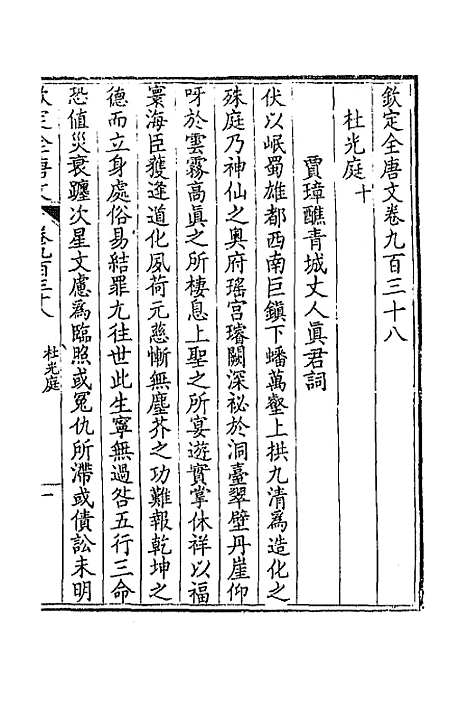 欽定全唐文卷九百三十八
杜光庭十
賈璋醮青城丈人眞君詞
伏以岷蜀雄都西南巨鎭下蟠萬壑上拱九清爲造化之
殊庭乃神仙之奥府瑶宫璿闕深祕於洞臺翠壁丹崖仰
呀於雲霧高眞之所棲息上聖之所宴遊實掌休祥以福
寰海臣獲逢道化夙荷元慈慚無塵芥之功難報乾坤之
德而立身處俗易結罪尤往世此生寧無過咎五行三命
恐值災衰躔次星文慮爲臨照或冤仇所滯或債訟未明
欽定全唐文
卷九百三十八
杜光庭
一